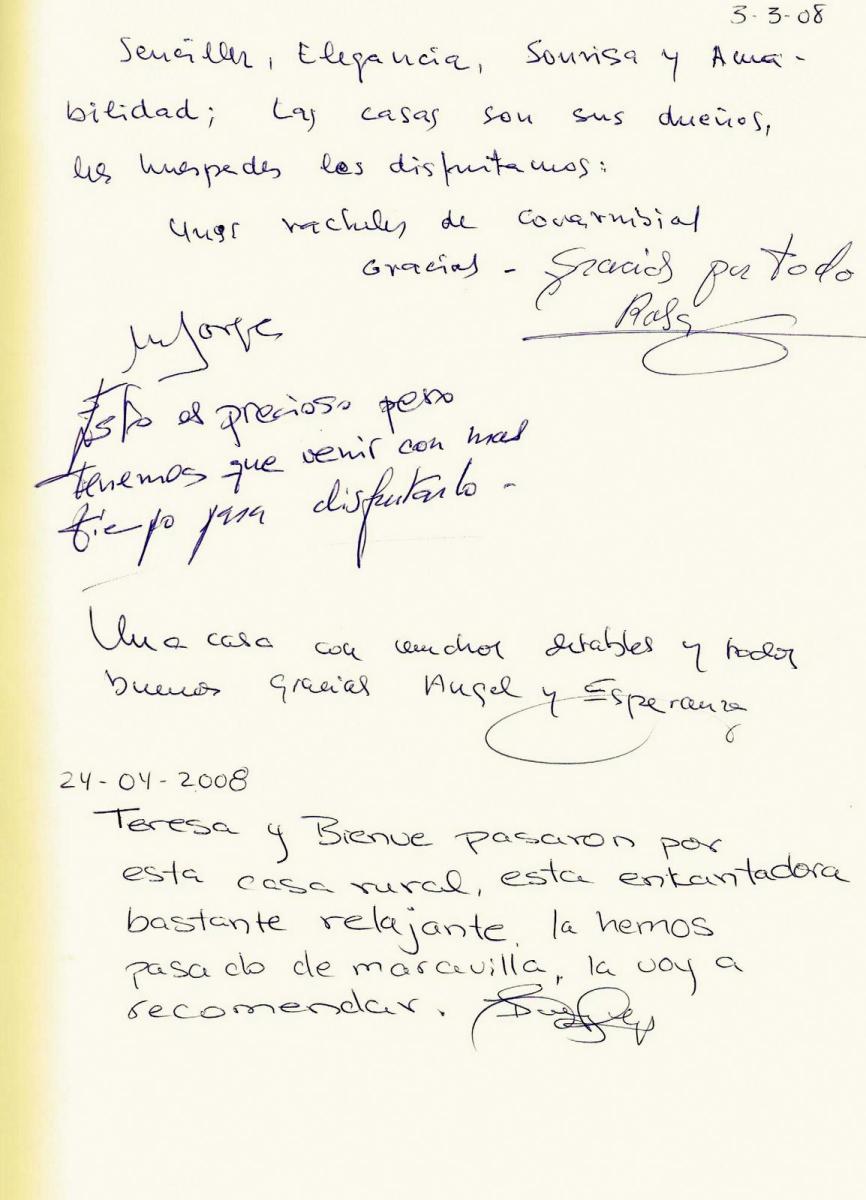 3-3-08
Sencillez, Elegancia, Sonrisa y Ama-
bilidad; Las casas son sus dueños,
los huespedes los disfrutamos:
Unos de
Gracias - Gracias por todo
Rosa
Jorge
Esto es precioso pero
tenemos que venir con mas
tiempo para disfrutarlo -
Una casa con muchos detalles y todos
buenos gracias Angel y Esperanza
24-04-2008
Teresa y Bienve pasaron por
esta casa rural, esta enkantadora
bastante relajante, la hemos
pasado de maravilla, la voy a
recomendar.